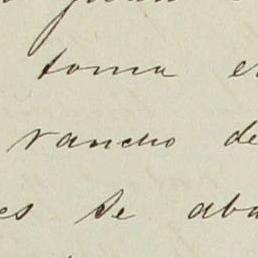 toma
rancho de
es se aba